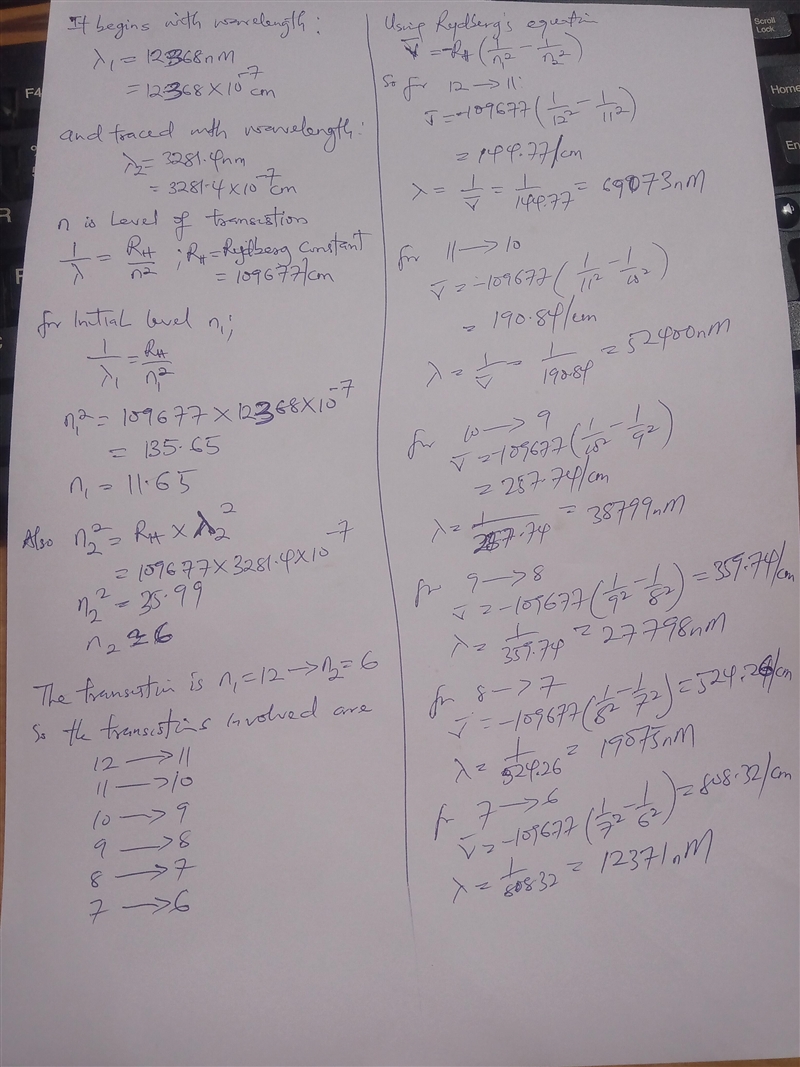 It begins with wavelength:
λ₁ = 12368nM
= 12368 × 10⁻⁷ cm
and traced with wavelength:
λ₂ = 3281.4nm
= 3281.4 × 10⁻⁷ cm
n is level of transistion
1/λ = R_H/n² ; R_H = Rydberg Constant
= 109677/cm
for initial level n₁;
1/λ₁ = R_H/n₁²
n₁² = 109677 × 12368 × 10⁻⁷
= 135.65
n₁ = 11.65
Also n₂² = R_H × λ₂²
= 109677 × 3281.4 × 10⁻⁷
n₂² = 35.99
n₂ = 6
The transistion is n₁ = 12 → n₂ = 6
So the transistions involved are
12 → 11
11 → 10
10 → 9
9 → 8
8 → 7
7 → 6
Using Rydberg's equation
V̄ = -R_H (1/n² - 1/n₂²)
So for 12 → 11:
V̄ = -109677 (1/12² - 1/11²)
= 144.77/cm
λ = 1/V̄ = 1/144.77 = 69073nM
for 11 → 10
V̄ = -109677 (1/11² - 1/10²)
= 190.84/cm
λ = 1/V̄ = 1/190.84 = 52400nM
for 10 → 9
V̄ = -109677 (1/10² - 1/9²)
= 257.74/cm
λ = 1/257.74 = 38799nM
for 9 → 8
V̄ = -109677 (1/9² - 1/8²) = 359.74/cm
λ = 1/359.74 = 27798nM
for 8 → 7
V̄ = -109677 (1/8² - 1/7²) = 524.26/cm
λ = 1/524.26 = 19075nM
for 7 → 6
V̄ = -109677 (1/7² - 1/6²) = 808.32/cm
λ = 1/808.32 = 12371nM
Scroll
Lock
Home
En
F4
%